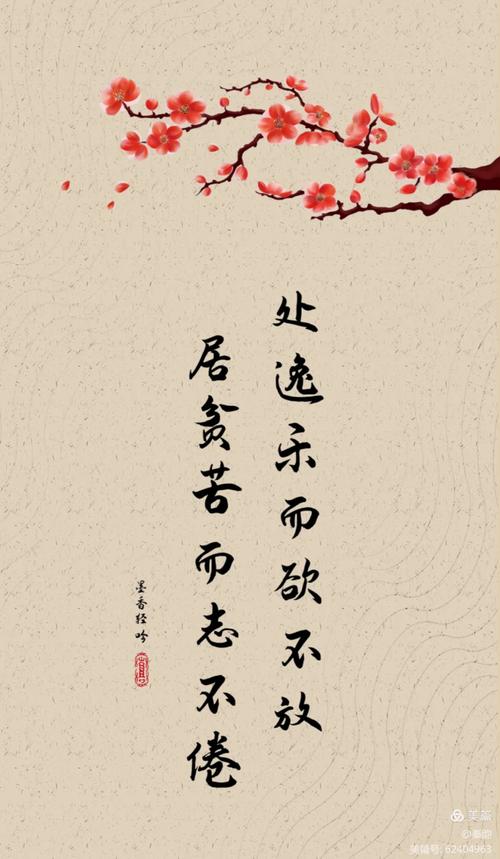 处逸乐而欲不放
居贫苦而志不倦
墨香轻吟
美篇
美篇号: 62404963